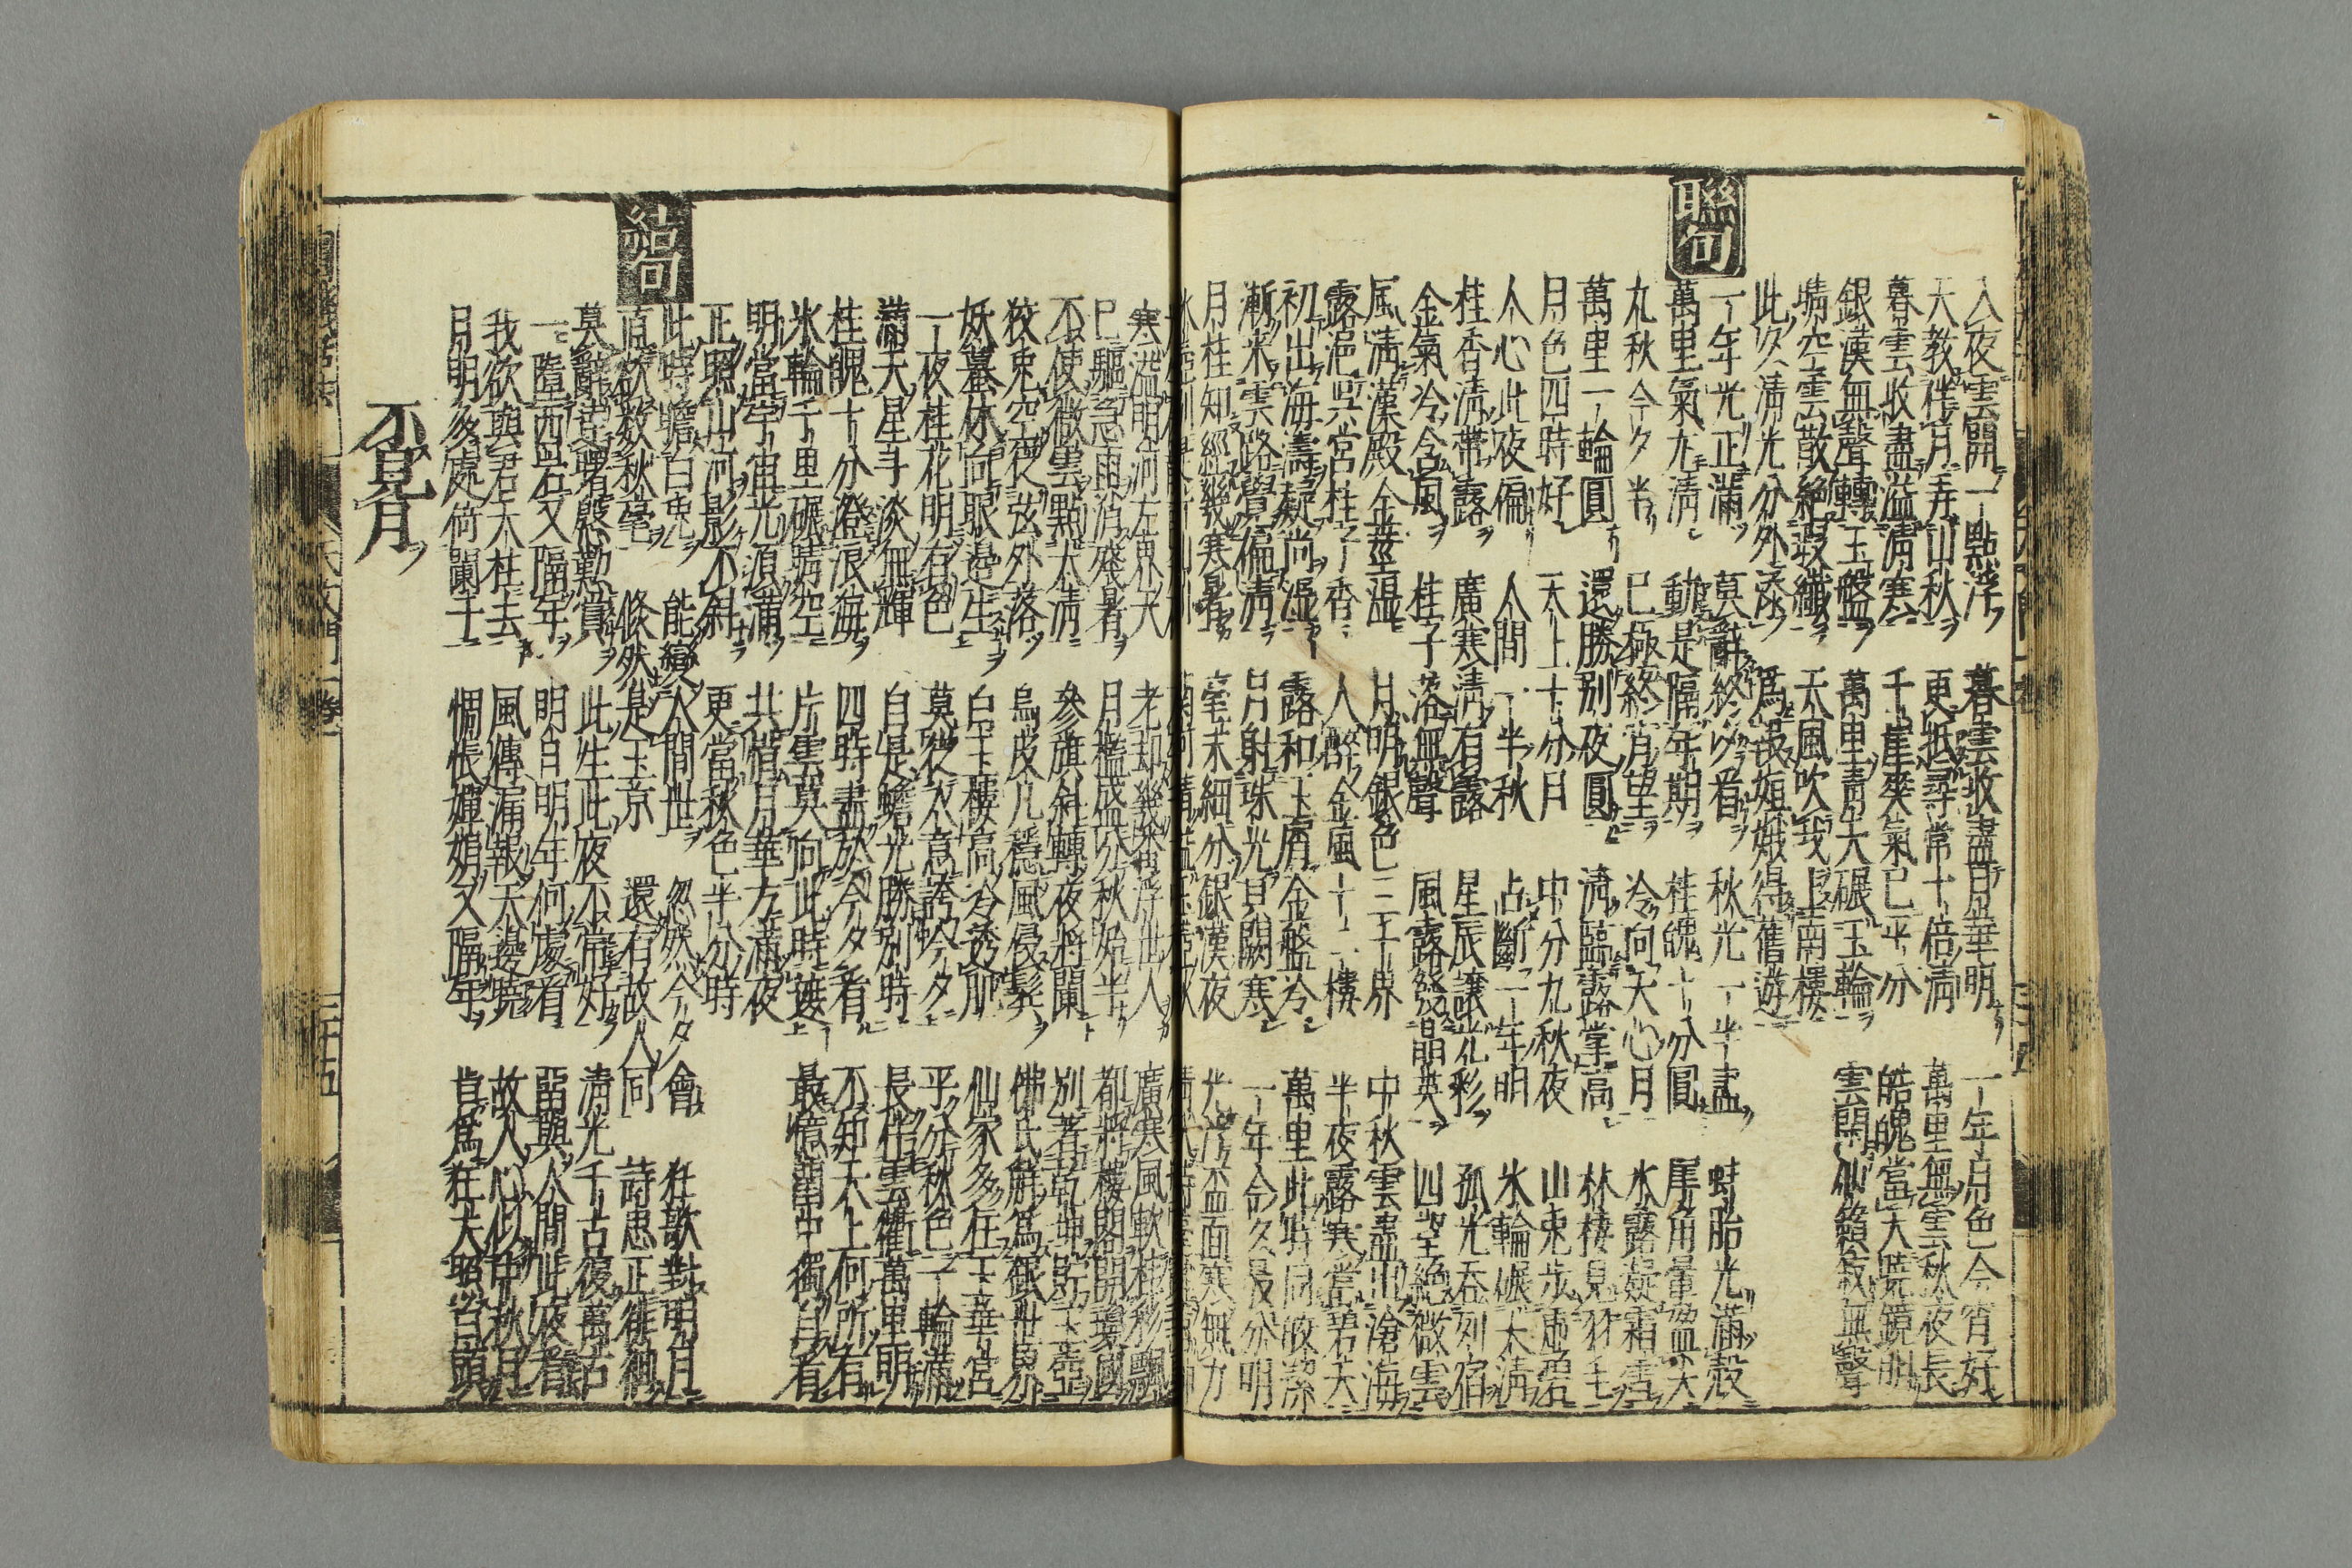 入夜雲開一點浮 暮雲收盡月華明 一年月色今宵好
天教伴月弄山秋 更抵尋常十倍清 萬里無雲秋夜長
暮雲收盡溢清寒 千崖爽氣已平分 皓魄當天
銀漢無聲轉玉盤 萬里青天碾玉輪 雲閑仙籟寂無聲
晴空雲散絕瑕纖 天風吹我上南樓
此夕清光分外添 為報姮娥得舊遊
聯句
一年光正滿 莫辭終夕看 秋光一半盡 蚌胎光滿殼
萬里氣尤清 動是隔年期 桂魄十分圓 犀角暈盈
九秋今夕半 已極終宵望 冷向天心月 氷露凝霜雪
萬里一輪圓 還勝別夜圓 清臨露掌高 林棲見羽毛
月色四時好 天上十分月 中分九秋夜 山兔步虛碧
人心此夜偏 人間一半秋 占斷一年明 氷輪碾太清
桂香清帶露 廣寒清有露 星辰讓光彩 孤光吞列宿
金氣冷含風 桂子落無聲 風露發晶英 四望絕微雲
風清漢殿金莖濕 月明銀色三千界 中秋雲盡出滄海
露浥吳宮桂子香 人醉金風十二樓 半夜露寒當碧天
初出海濤疑尚濕 露和玉屑金盤冷 萬里此時同皎潔
漸來雲路覺偏清 月射珠光貝闕寒 一年今夕最分明
月桂知經幾寒暑 毫末細分銀漢夜 光浮盃面寒無力
寒濫明河左界天 老却幾來浮世人 廣寒風軟桂移飄
已驅急雨消殘暑 月檻盛分秋始半 都將樓閣開瓊國
不使微雲點太清 參旗斜轉夜將闌 別著乾坤貯玉壺
狡兔空從弦外落 烏皮几穩風侵鬢 佛氏解為銀世界
妖蟇休向眼邊生 白玉樓高冷透肌 仙家多住玉華宮
一夜桂花明有色 莫從人意誇今夕 平分秋色一輪滿
滿天星斗淡無輝 自是蟾光勝別時 長伴雲衢萬里明
桂魄十分澄浪海 四時盡於今夕看 不知天上何所有
氷輪千里碾晴空 片雲莫向此時遮 最憶
明當宇宙光源滿 共惜月華方滿夜
正照山河影不斜 更當秋色半分時
結句
此時瞻白兔 能續人間世 忽然今夕會 狂歌對明月
直欲數秋毫 倏然是玉京 還有故人同 詩思正徘徊
莫辭達曙慇懃賞 此生此夜不常好 清光千古復萬古
一墮西巖又隔年 明月明年何處看 人間此夜看
我欲與君天柱去 風傳漏報天邊曉 故人心似中秋月
月明多處倚闌干 惆悵嬋娟又隔年 肯為狂夫照白頭
不見月